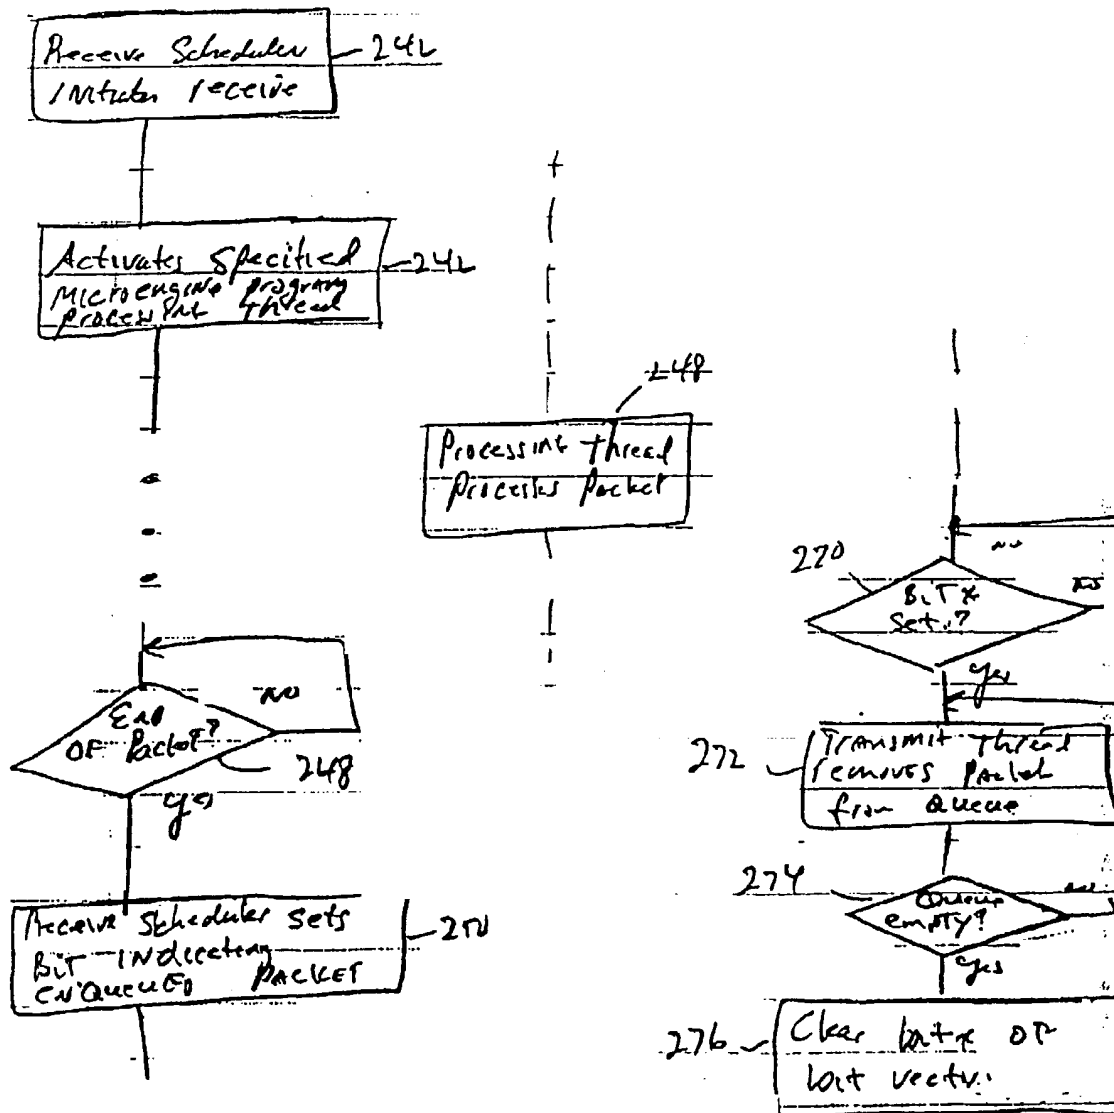 Receive Scheduler
Initiates receive
242
Activates Specified
Microengine program
processing thread
242
Processing thread
processes packet
248
End
OF Packet?
NO
248
yes
Receive Scheduler sets
Bit indicating
enqueued PACKET
270
Bit x
Set?
NO
NO
yes
272
Transmit thread
removes packet
from Queue
274
Queue
empty?
NO
yes
276
Clear bit x of
bit vector